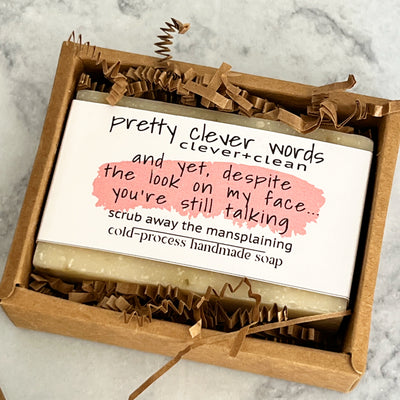 pretty clever words
clever+clean
and yet, despite
the look on my face...
you're still talking
scrub away the mansplaining
cold-process handmade soap